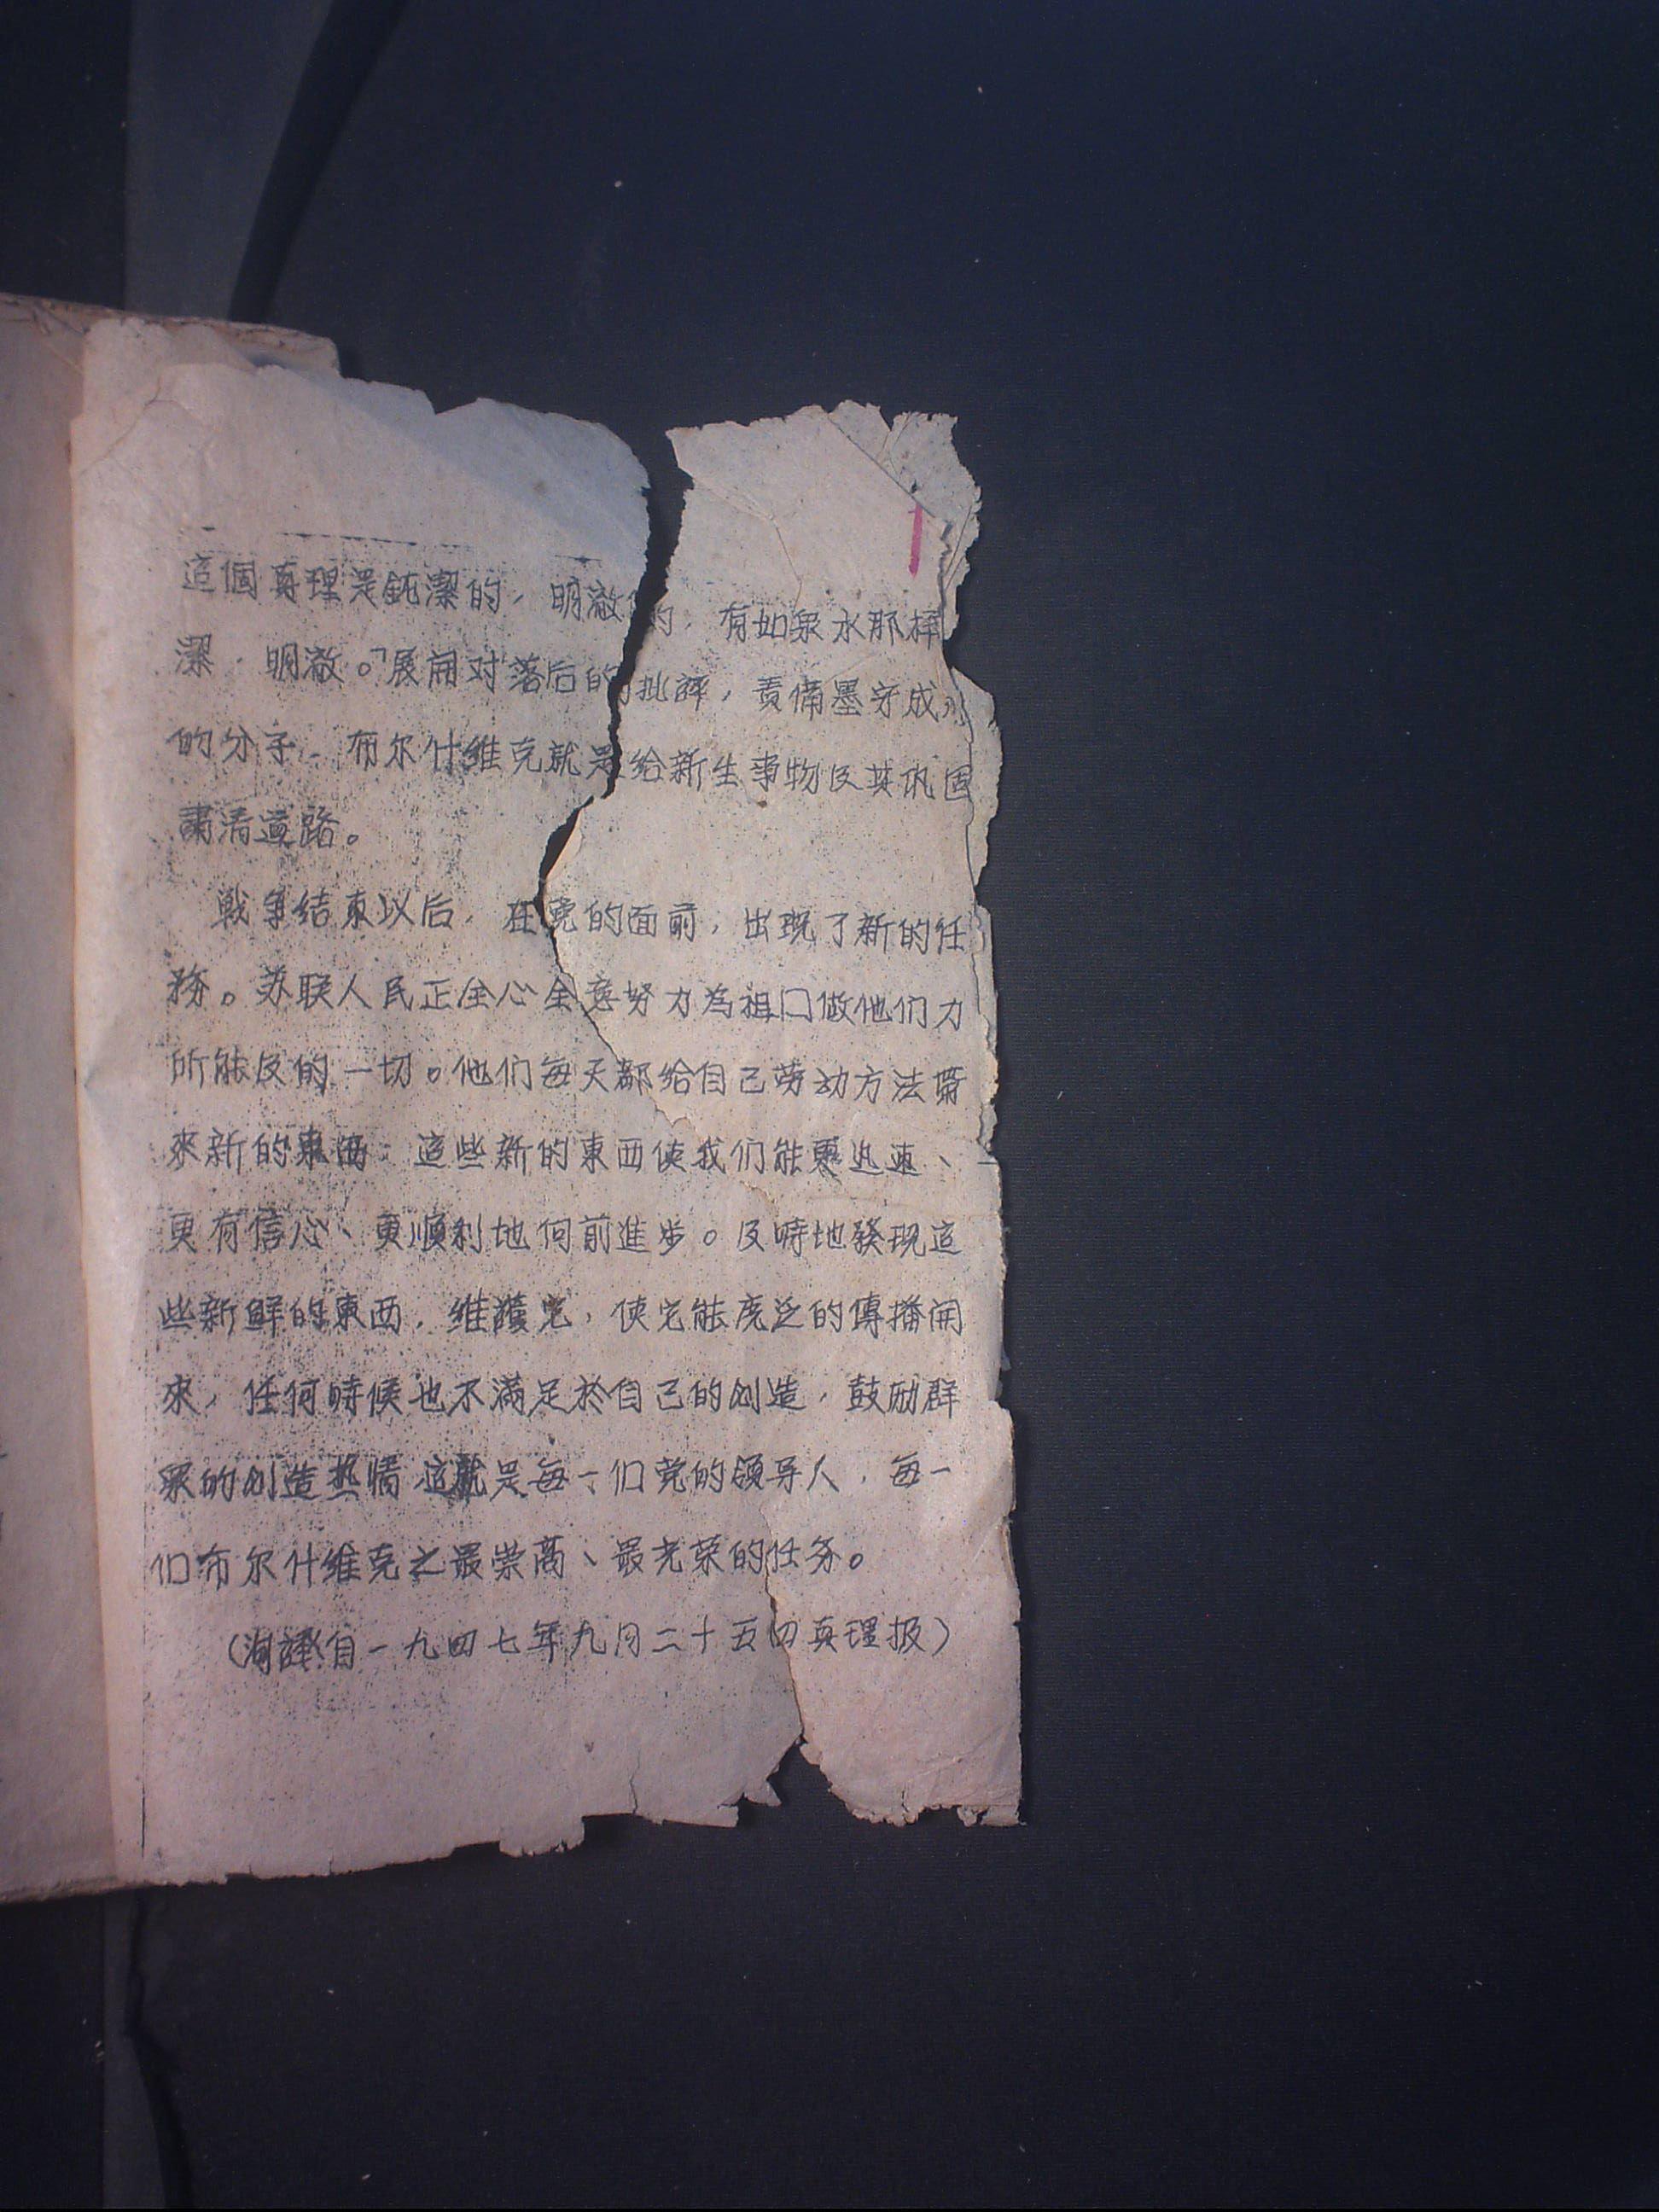 這個真理是純潔的，明澈的，有如泉水那樣
潔，明澈。展開对落后的批評，責備墨守成
的分子，布尔什維克就是給新生事物及其巩固
肅清道路。
戰争結束以后，在党的面前，出現了新的任
務。苏联人民正全心全意努力为祖囗做他们力
所能及的一切。他们每天都給自己劳动方法帶
來新的東西；這些新的東西使我们能更迅速、
更有信心、更順利地向前進步。及時地發現這
些新鮮的東西，維護它，使它能廣泛的傳播開
來，任何時候也不滿足於自己的创造，鼓励群
眾的创造热情 這就是每一们党的領导人，每一
们布尔什維克之最崇高、最光荣的任务。
（譯自一九四七年九月二十五日真理报）